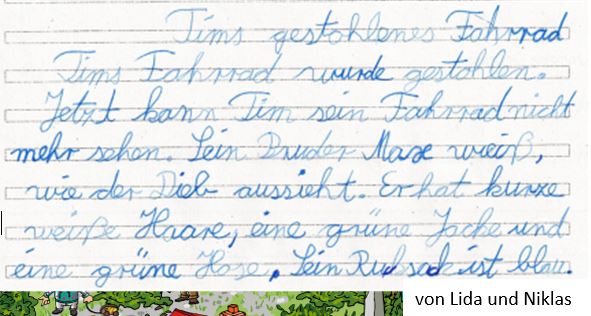 Tims gestohlenes Fahrrad
Tims Fahrrad wurde gestohlen.
Jetzt kann Tim sein Fahrrad nicht
mehr sehen. Sein Bruder Max weiß,
wie der Dieb aussieht. Er hat kurze
weiße Haare, eine grüne Jacke und
eine grüne Hose. Sein Rucksack ist blau.
von Lida und Niklas